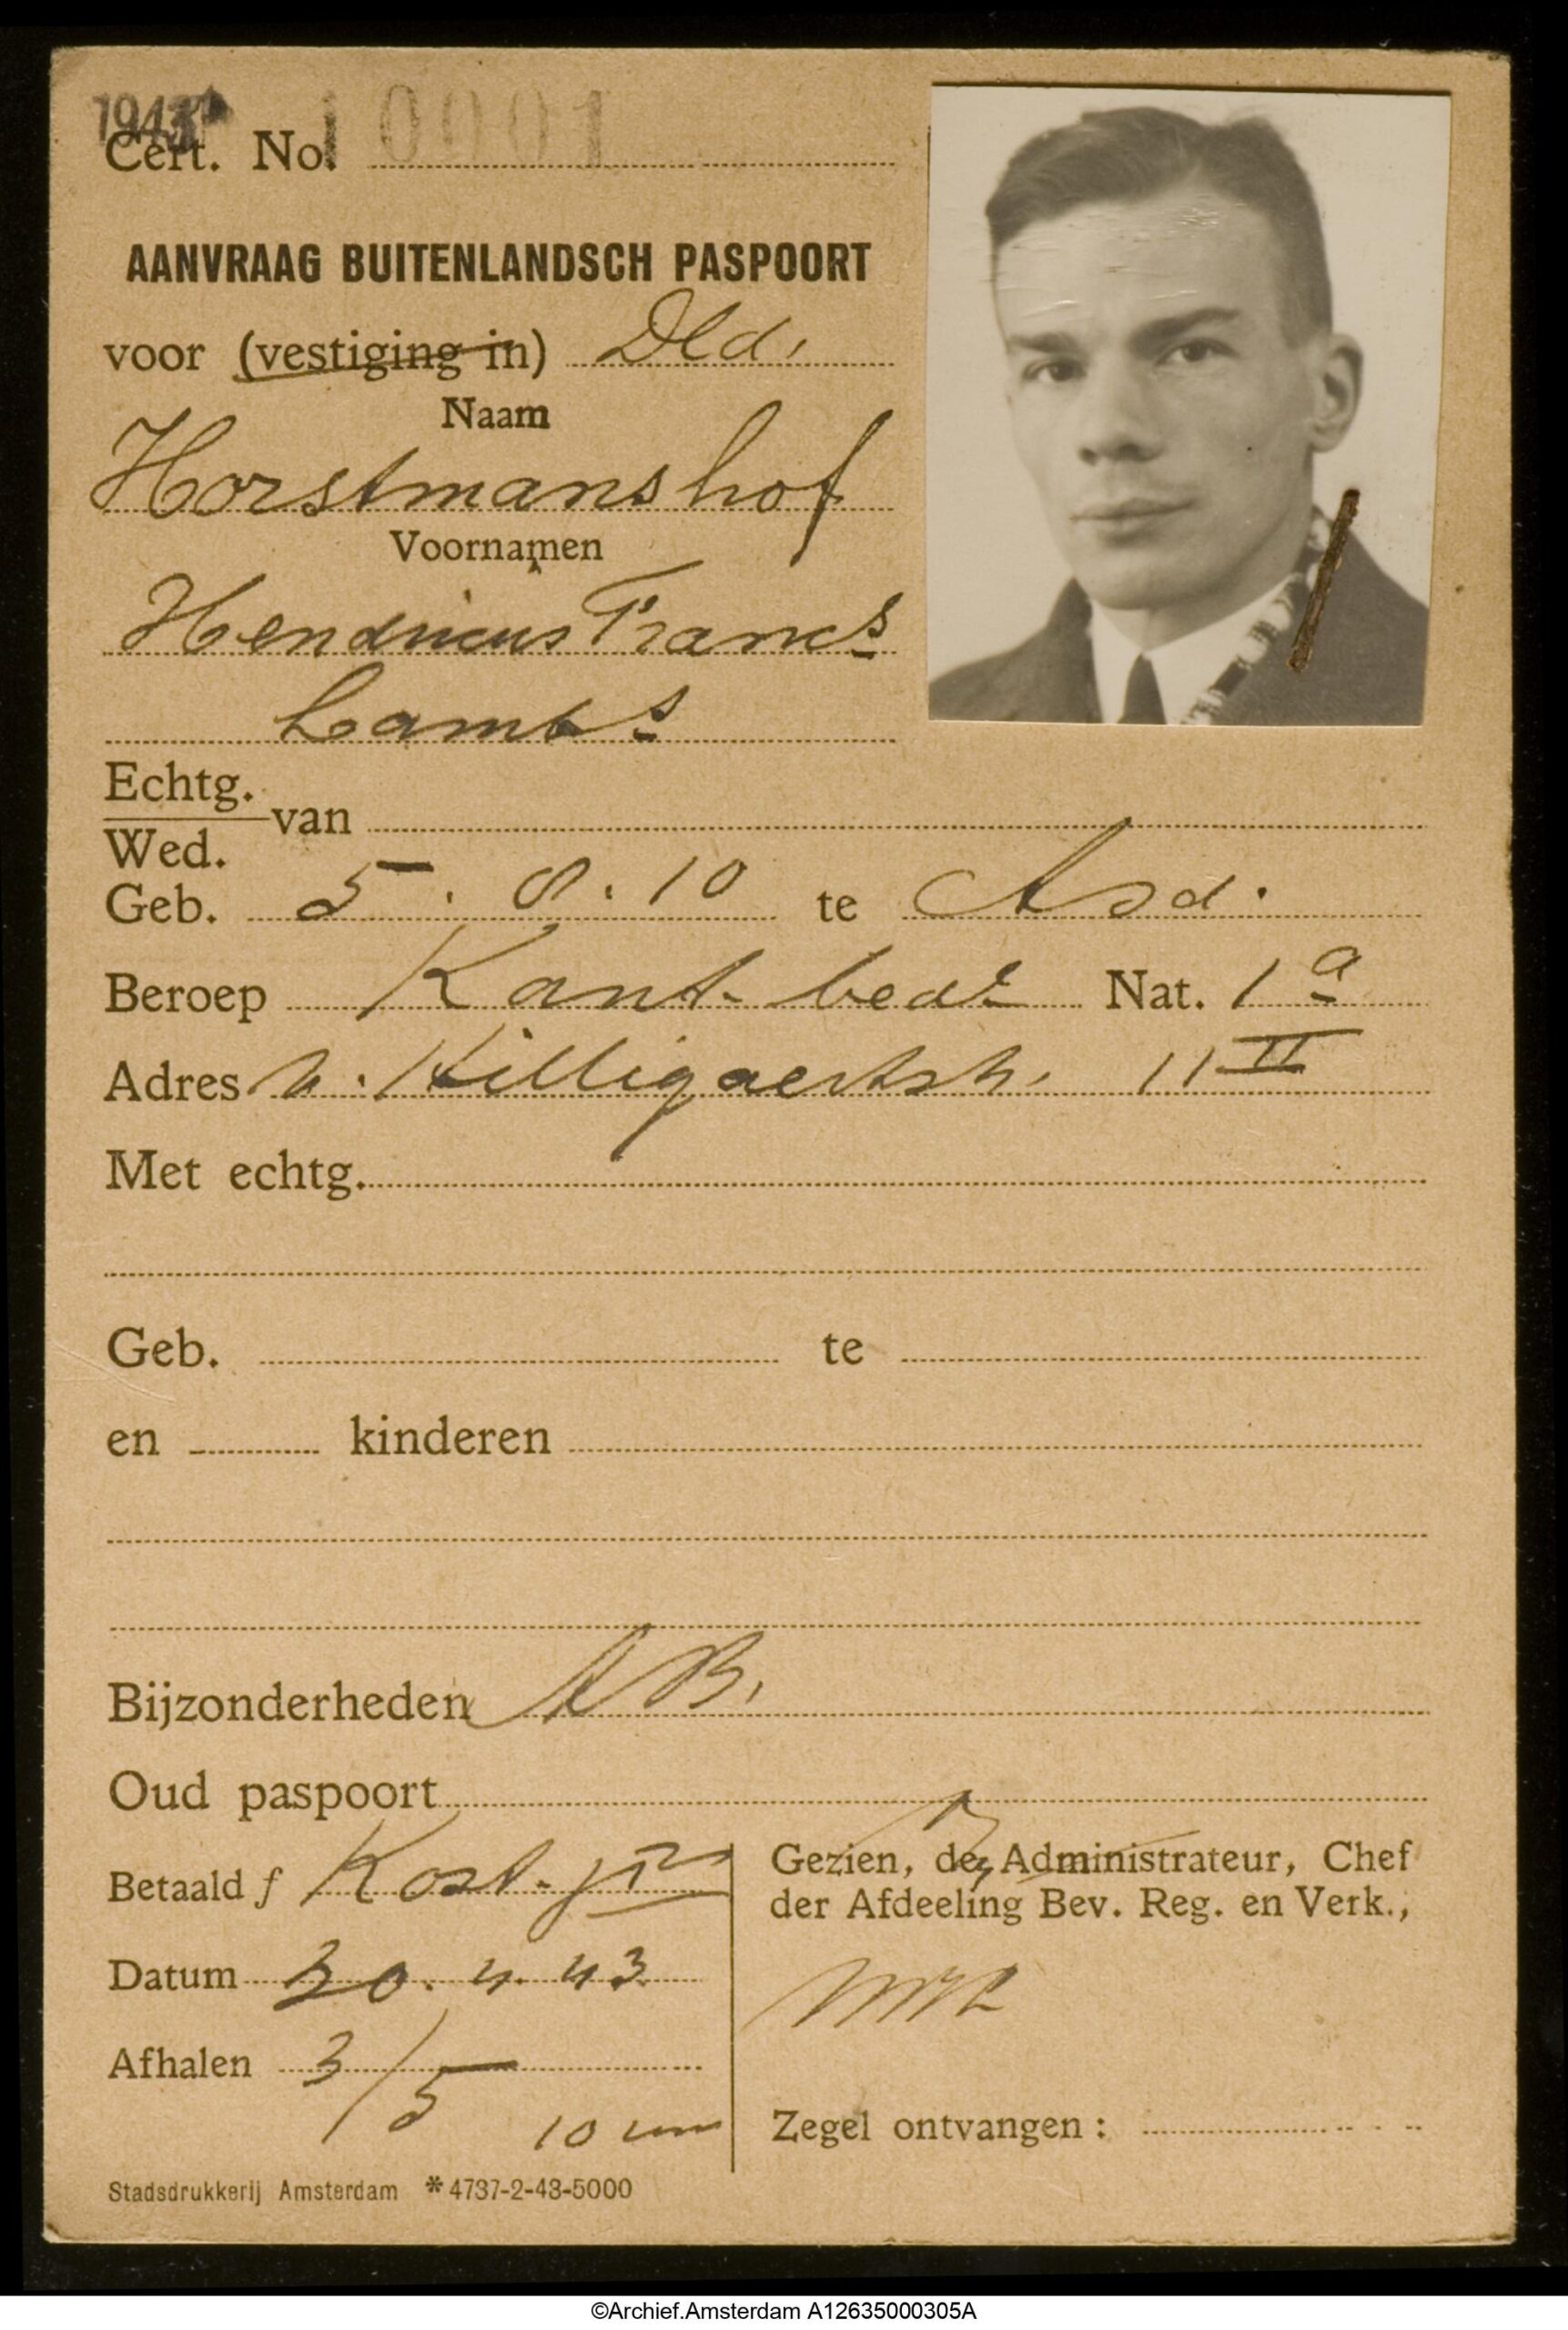 1943
Cert. No. 10001
AANVRAAG BUITENLANDSCH PASPOORT
voor (vestiging in) Dld.
Naam
Horstmanshof
Voornamen
Hendricus Francs
Lambs
Echtg.
Wed. van
Geb. 5. 8. 10 te Asd.
Beroep Kant. bede Nat. 1a
Adres v. Hilligaertstr. 11 II
Met echtg.
Geb. te
en kinderen
Bijzonderheden AB.
Oud paspoort
Betaald f Kost.
Gezien, de Administrateur, Chef
der Afdeeling Bev. Reg. en Verk.,
Datum 30. 4. 43
Afhalen 3/5
10 uur
Zegel ontvangen:
Stadsdrukkerij Amsterdam *4737-2-43-5000
©Archief.Amsterdam A12635000305A